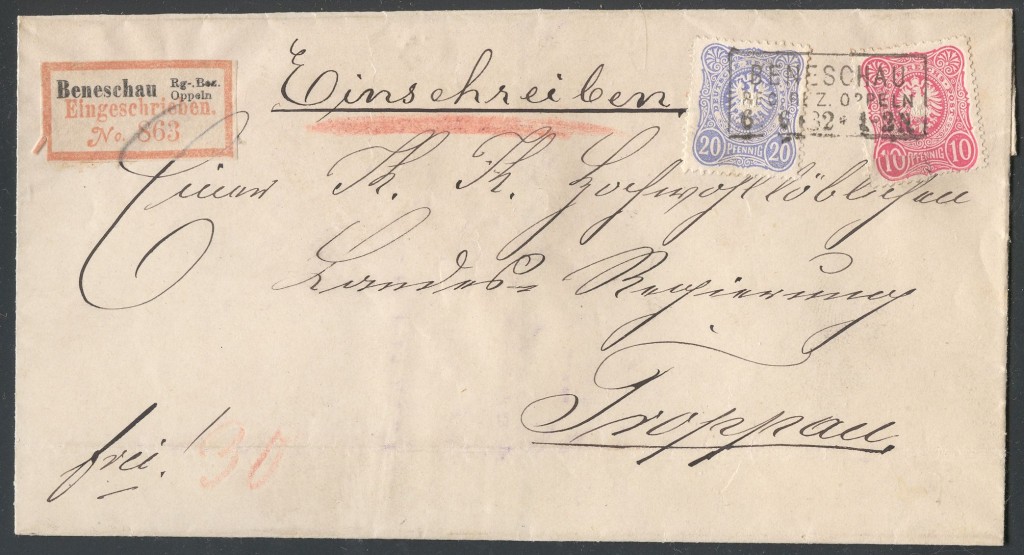 Beneschau Rg.-Bez. Oppeln
Eingeschrieben.
No. 863
Einschreiben.
BENESCHAU
REG. BEZ. OPPELN
6 82
20 PFENNIG 20
10 PFENNIG 10
Einer K. K. Hochwohllöblichen
Landes-Regierung
Troppau.
frei!
30